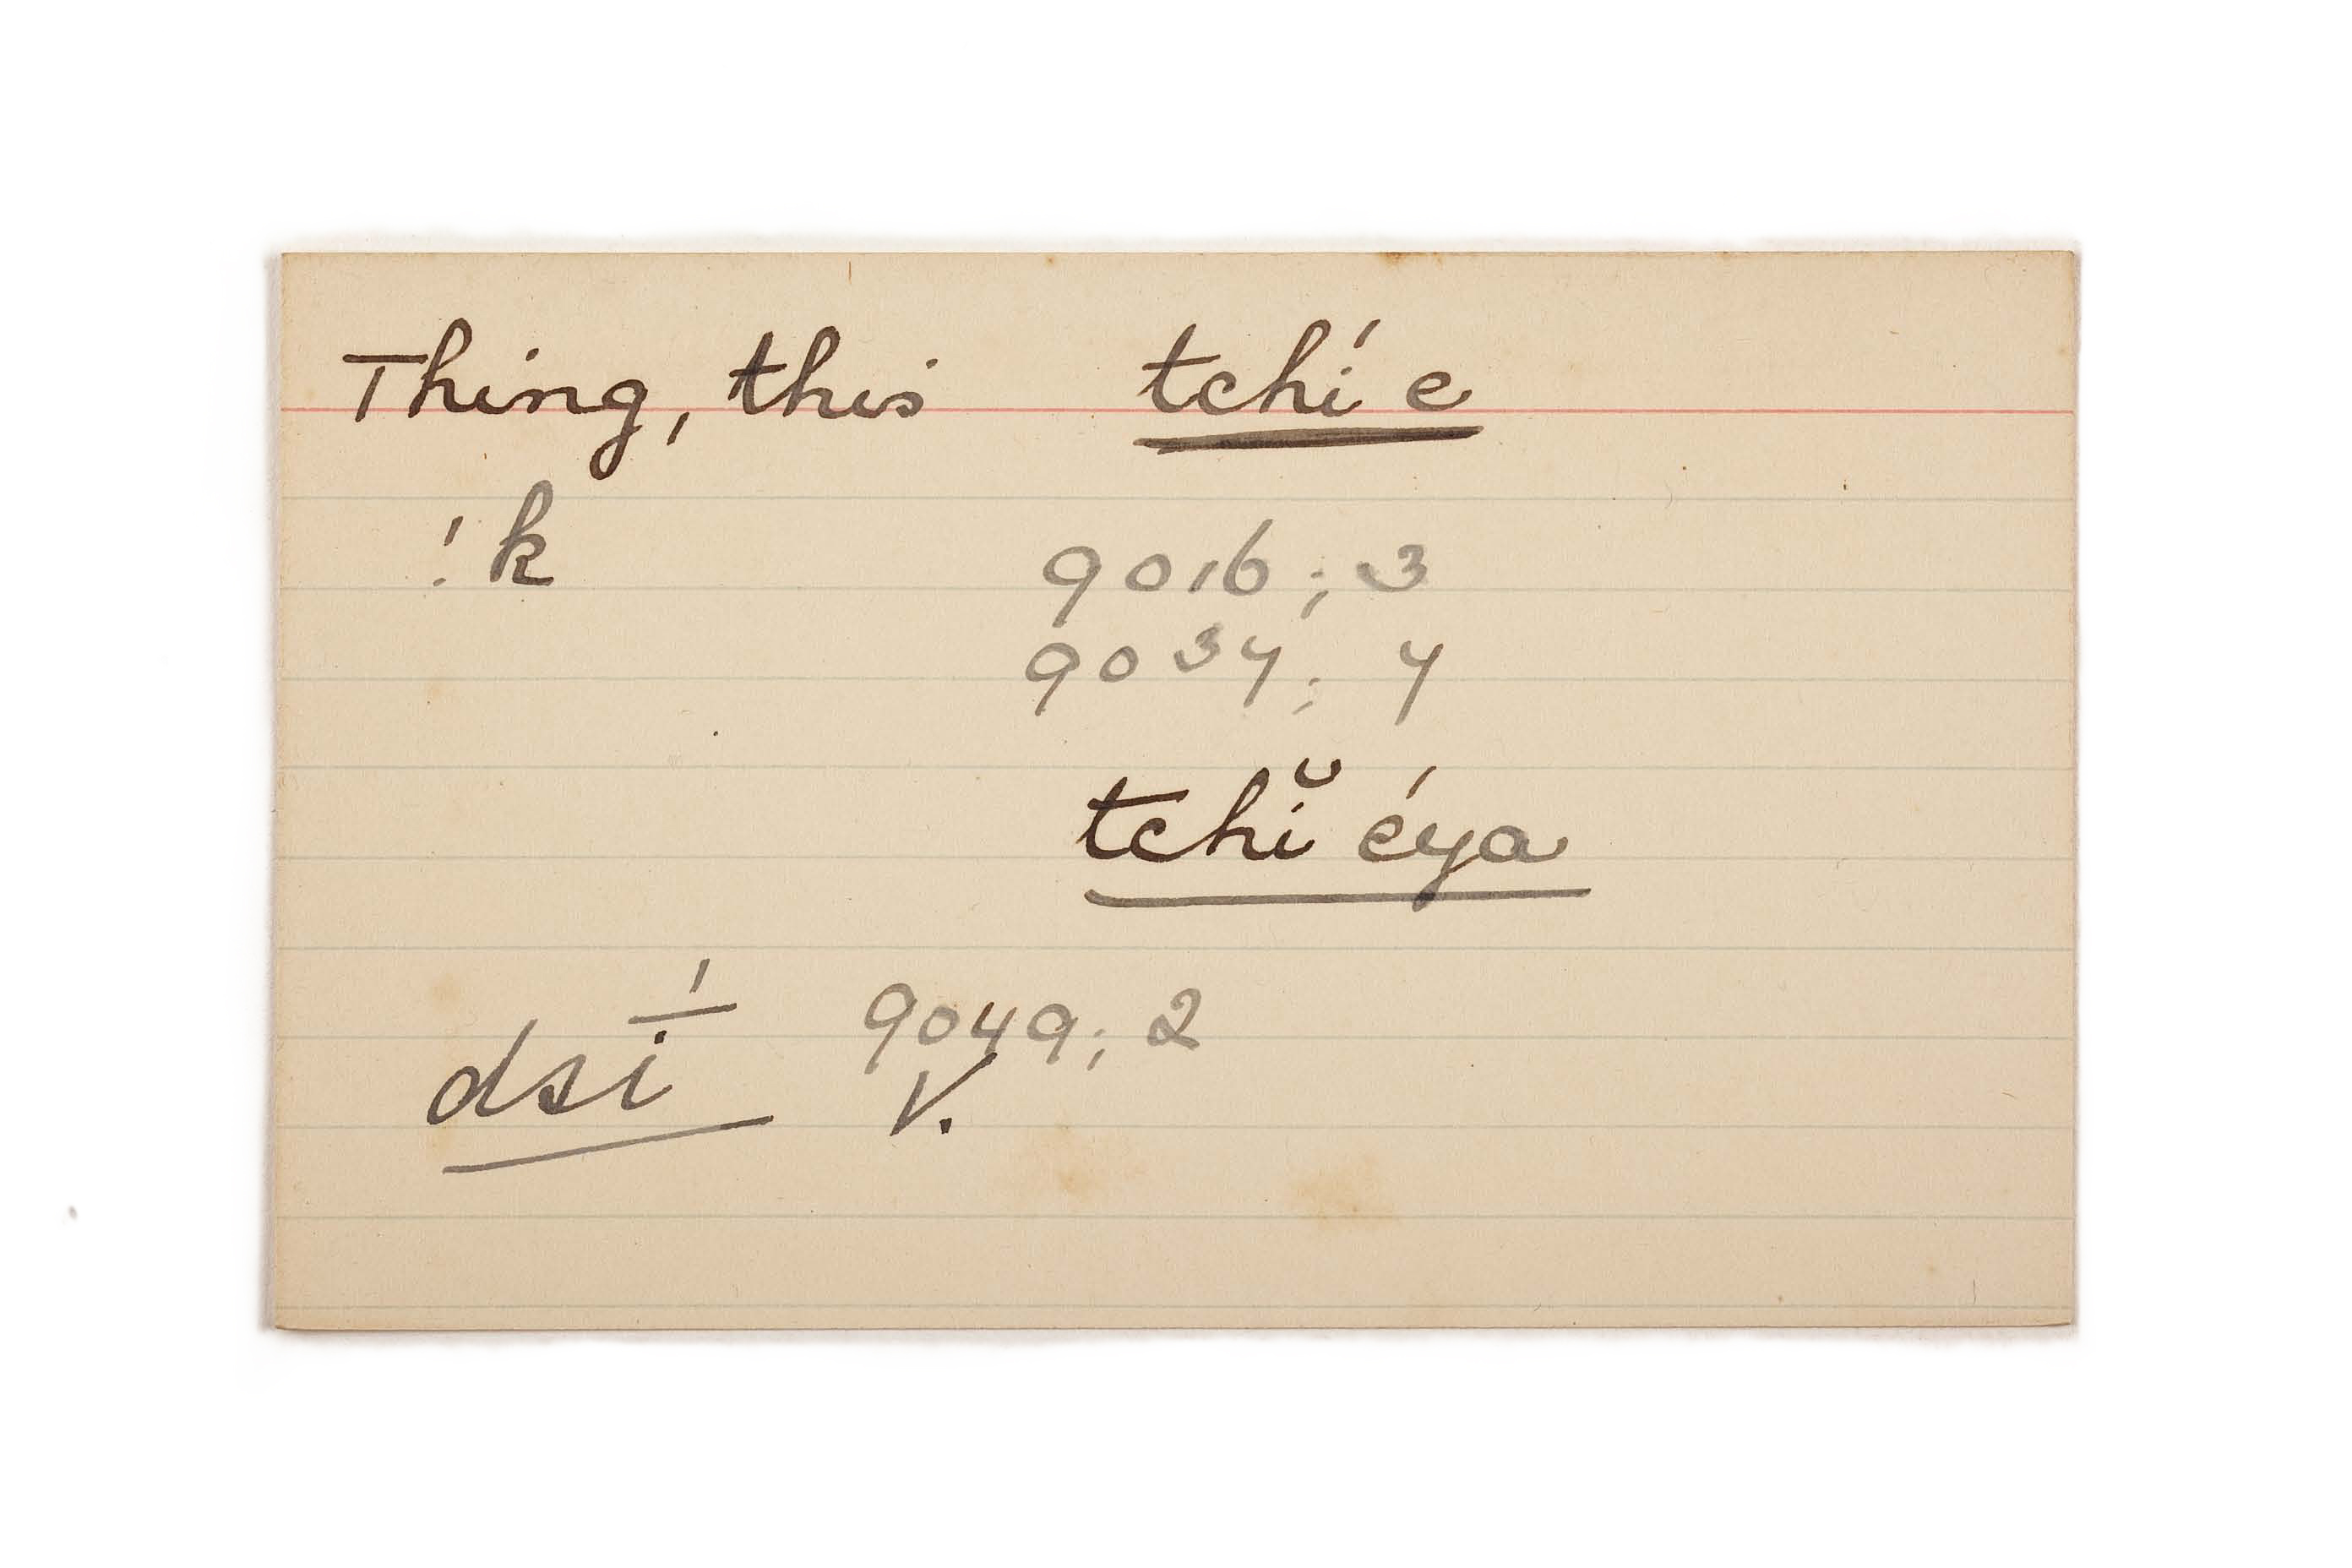 Thing, this tchí e
! k 9016; 3
9034; 4
tchĭ éya
dsī́ 9049; 2
V.